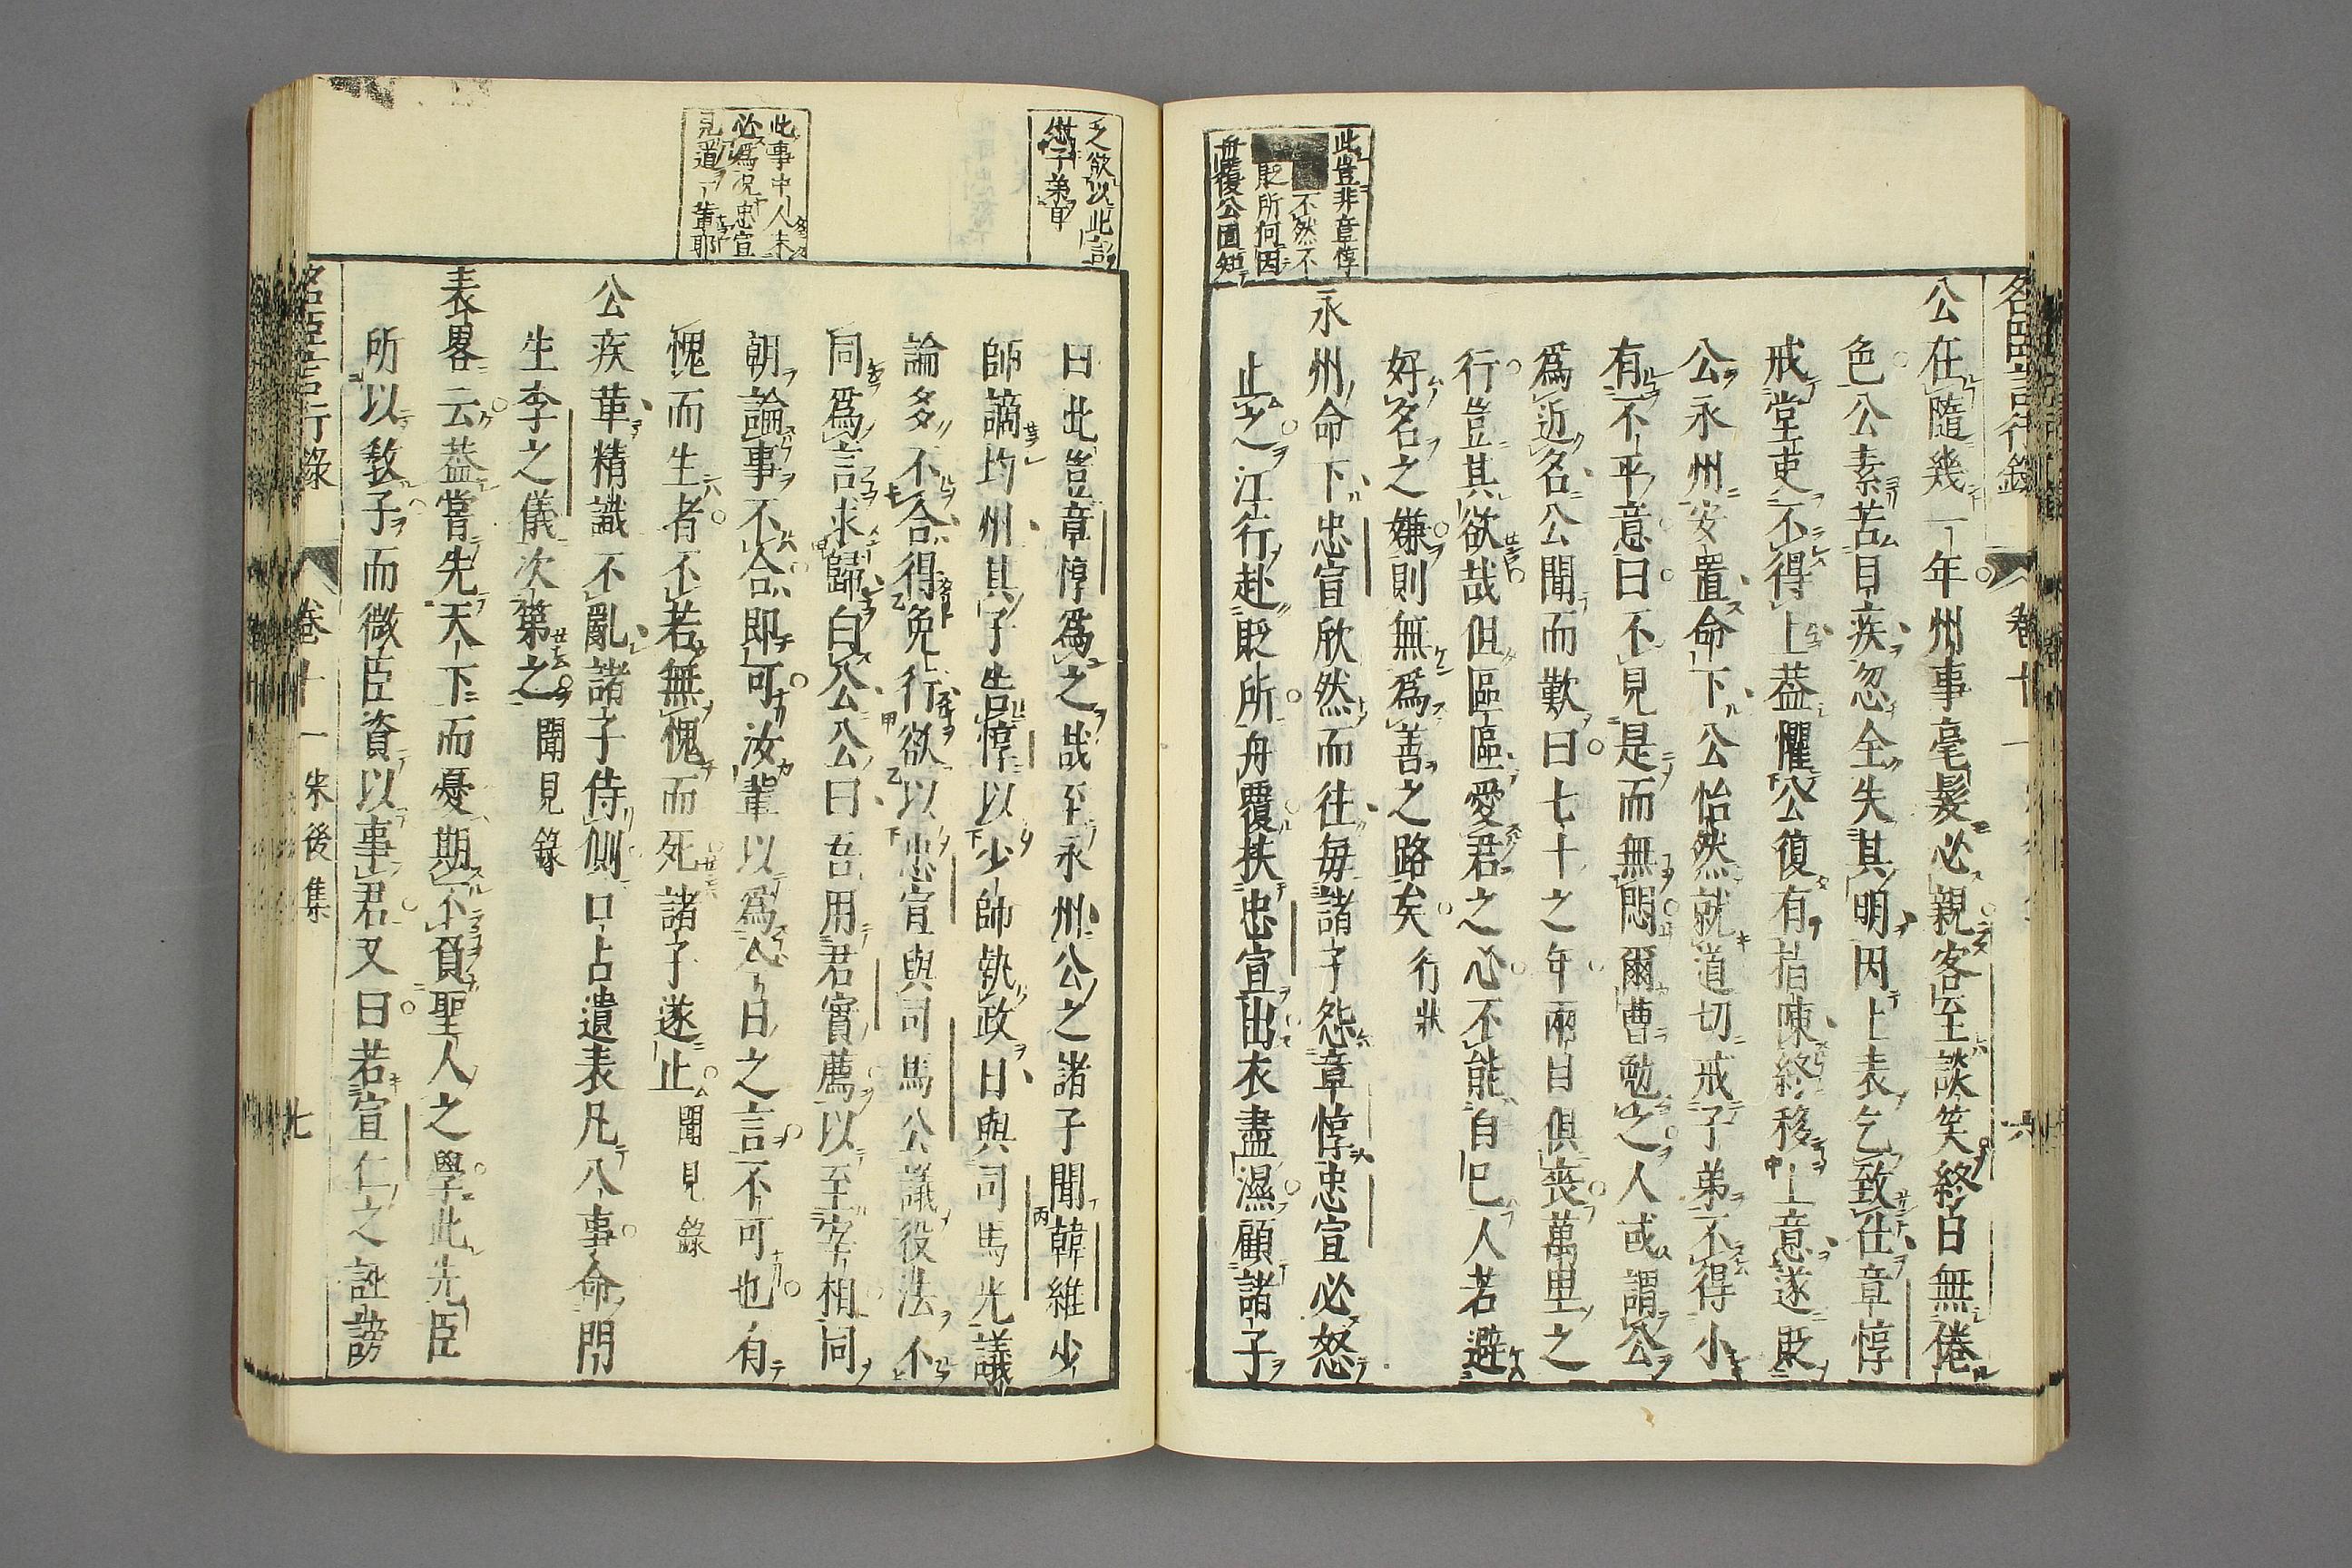 名臣言行錄 卷十一
公在隨幾一年州事毫髮必親客至談笑終日無倦
色公素苦目疾忽全失其明因上表乞致仕章惇
戒堂吏不得上葢懼公復有指陳終移上意遂貶
公永州安置命下公怡然就道切戒子弟不得小
有不平意曰不見是而無悶爾曹勉之人或謂公
爲近名公聞而歎曰七十之年兩目俱喪萬里之
行豈其欲哉但區區愛君之心不能自已人若避
好名之嫌則無爲善之路矣 行狀
永州命下忠宣欣然而往毎諸子怨章惇忠宣必怒
止之江行赴貶所舟覆扶忠宣出衣盡濕顧諸子
此豈非章惇
不然不
貶所何因
舟覆公固知
曰此豈章惇爲之哉至永州公之諸子聞韓維少
師謫均州其子告惇以少師執政日與司馬光議
論多不合得免行欲以忠宣與司馬公議役法不
同爲言求歸白公公曰吾用君實薦以至宰相同
朝論事不合即可汝輩以爲今日之言不可也有
愧而生者不若無愧而死諸子遂止 聞見錄
公疾革精識不亂諸子侍側口占遺表凡八事命門
生李之儀次第之 聞見錄
表畧云葢嘗先天下而憂期不負聖人之學此先臣
所以敎子而微臣資以事君又曰若宣仁之誣謗
之欲以此言
此事中人未
必爲况忠宣
見道一輩耶
名臣言行錄 卷十一 宋後集 七